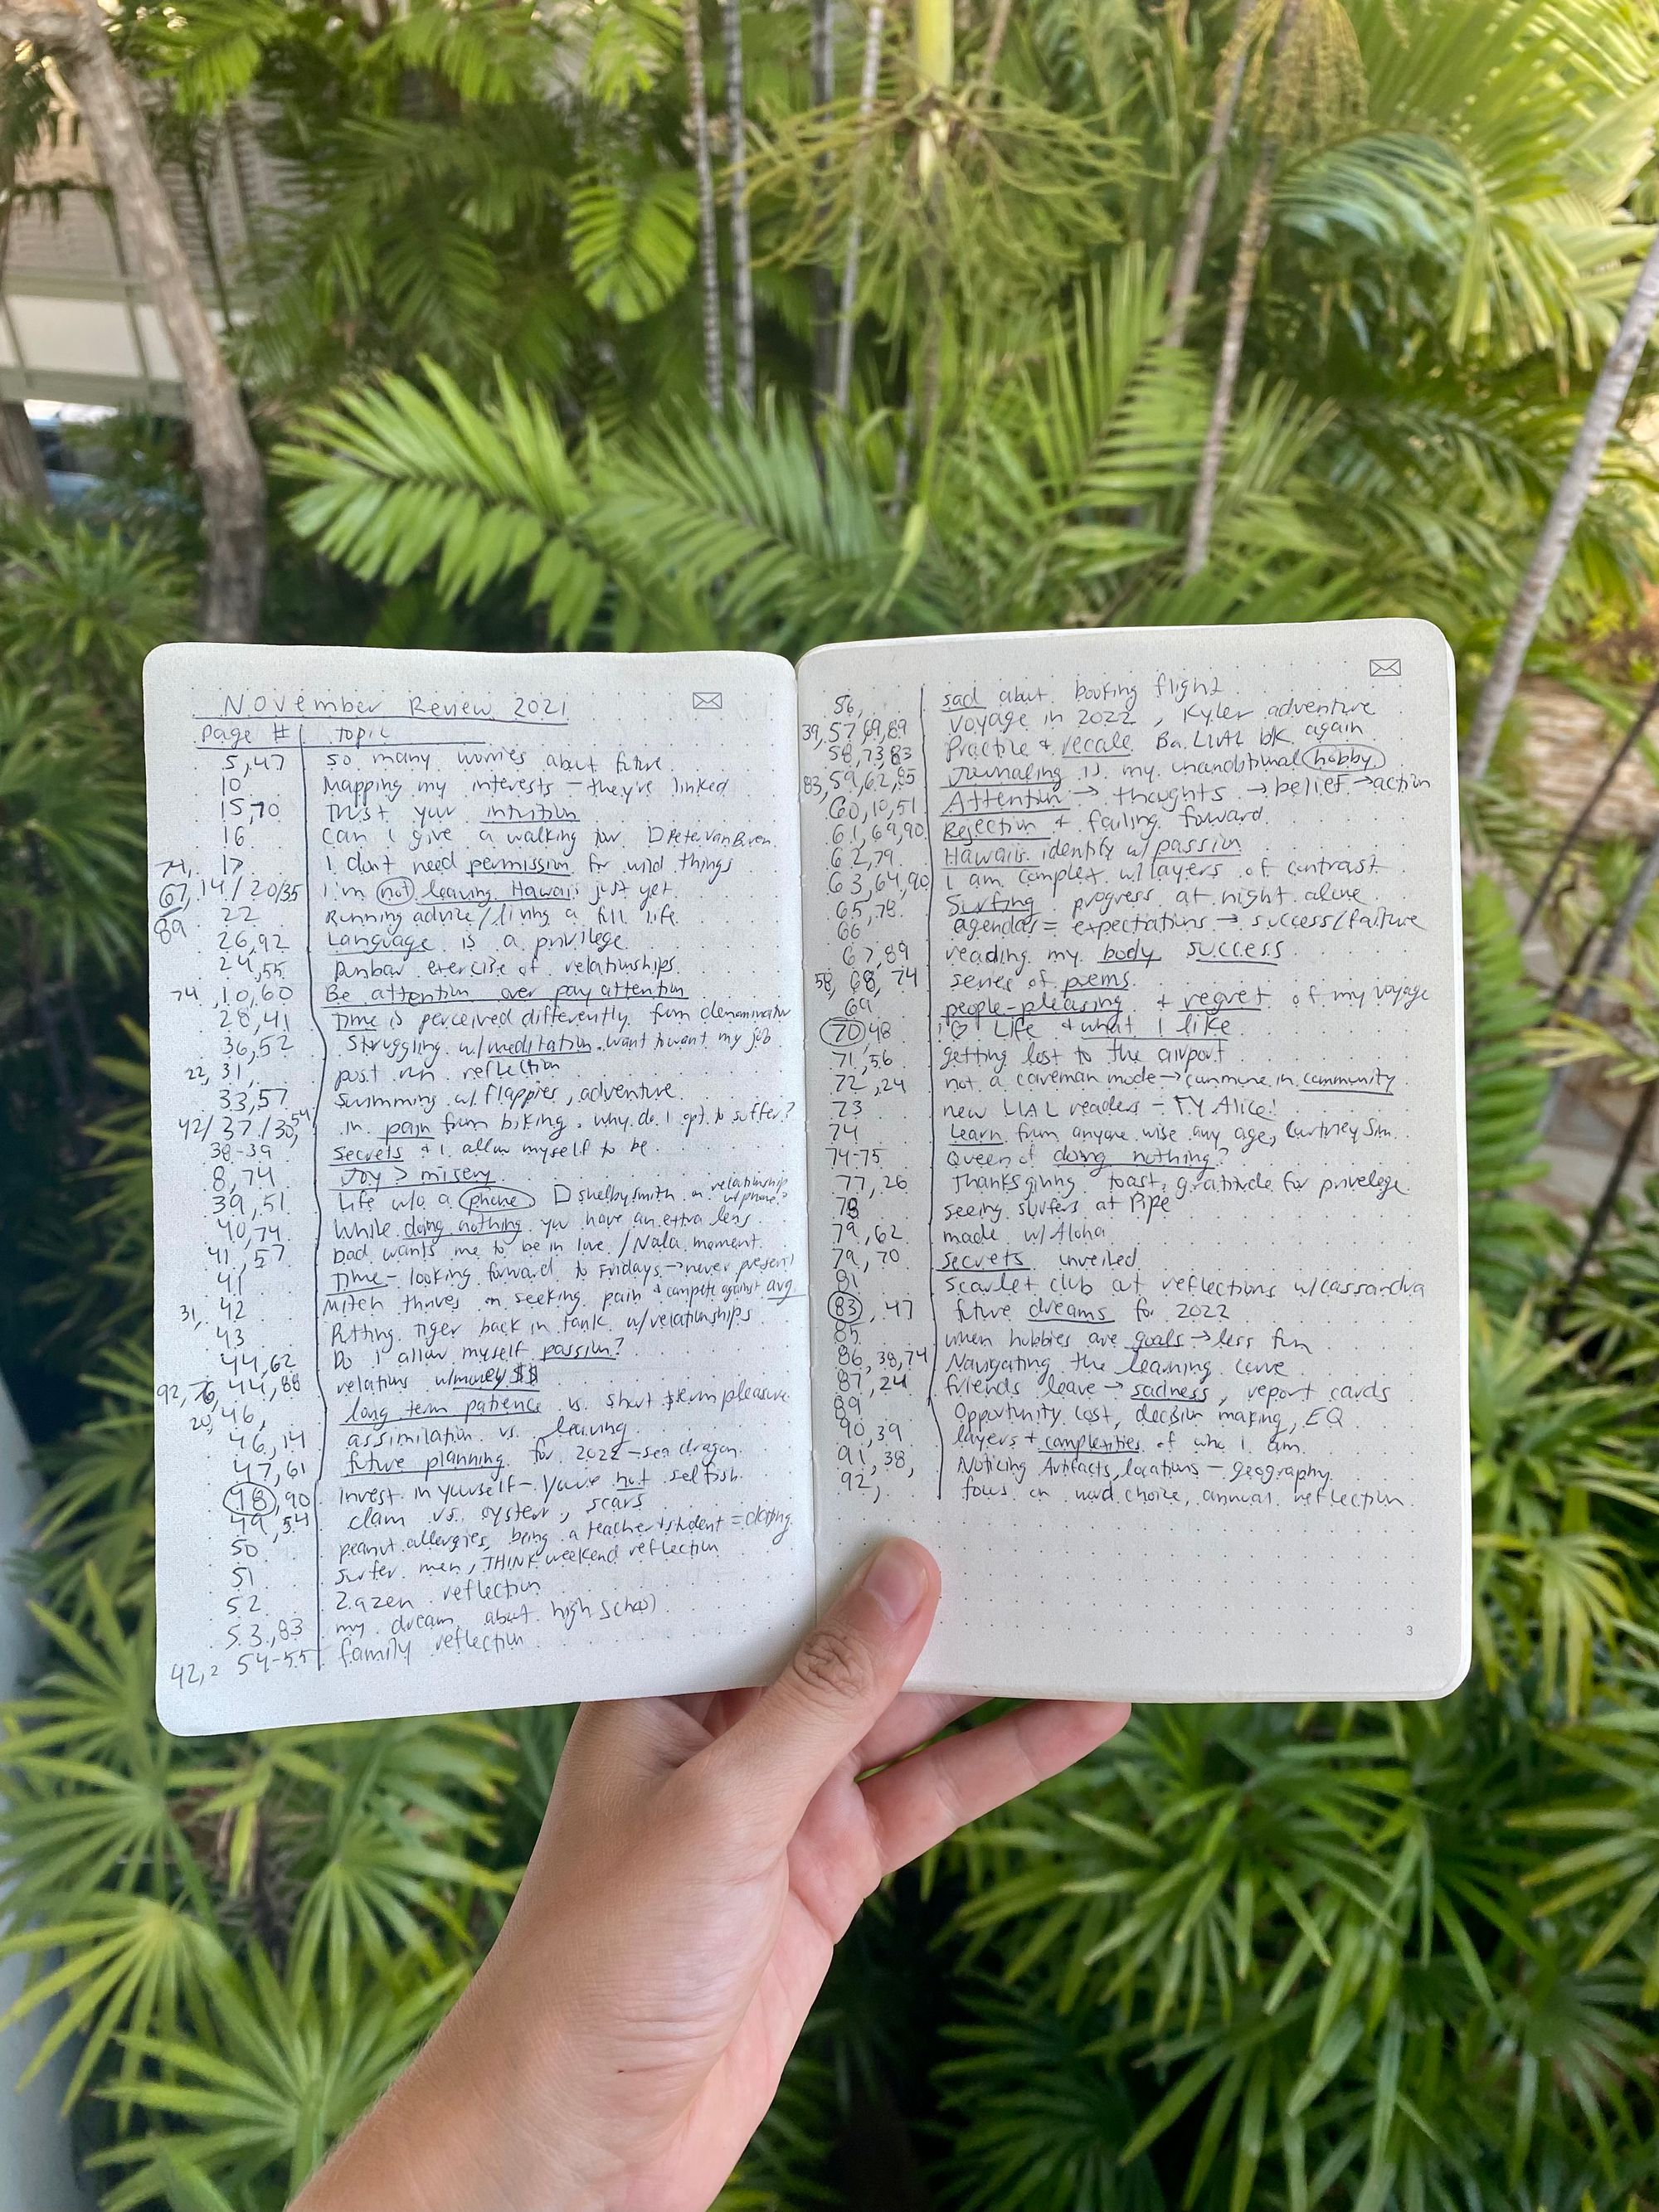 November Review 2021
page # topic
5,47 so many worries about future
10 Mapping my interests – they're linked
15,70 Trust your intuition
16 can I give a walking tour □ Pete Van Buren
74, 17 I don't need permission for wild things
67, 14 / 20/35 I'm not leaving Hawaii just yet
89 22 Running advice / living a full life
26,92 Language is a privilege
24,55 Dunbar exercise of relationships
74 ,10,60 Be attention over pay attention
28,41 Time is perceived differently from denominator
36,52 Struggling w/ meditation. want to want my job
22, 31, post run reflection
33,57 Swimming w/ flappies, adventure
42/ 37 /30,54 in pain from biking. why do I opt to suffer?
38-39 Secrets & I allow myself to be
8,74 Joy > misery
39,51 Life w/o a phone □ shelby smith on relationship w/ phone?
40,74 While doing nothing you have an extra lens
41, 57 bad wants me to be in love / Nala moment
41 Time – looking forward to Fridays → never present
31, 42 Mitch thrives on seeking pain & compete against avg
43 Putting tiger back in tank w/ relationships
44,62 Do I allow myself passion?
92, 76, 44,88 relations w/ money $$
20, 46, long term patience vs. short term pleasure
46,14 assimilation vs. leaving
47,61 future planning for 2022 – sea dragon
48, 90 invest in yourself – you're not selfish
49, 54 clam vs. oyster, scars
50 peanut allergies, being a teacher + student =
51 surfer men, THINK weekend reflection
52 Zazen reflection
53,83 my dream about high school
42, 2 54-55 family reflection
56, sad about booking flight
39,57 69,89 Voyage in 2022, Kyler adventure
58,73,83 Practice & recale Ba. LIAL bk again
83,59,62,85 Journaling is my unconditional hobby
60,10,51 Attention → thoughts → belief → action
61,69,90 Rejection & failing forward
62,79 Hawaii identify w/ passion
63,64,90 I am complex w/ layers of contrast
65,78 Surfing progress at night alone
66 agendas = expectations → success/failure
67,89 reading my body success
58, 68, 74 series of poems
69 people-pleasing + regret of my voyage
70 48 I ♡ Life & what I like
71,56 getting lost to the airport
72 ,24 not a caveman mode → commune in community
73 new LIAL readers – TY Alice!
74 Learn from anyone wise any age, Courtney Sim
74-75 Queen of doing nothing?
77,26 Thanksgiving toast, gratitude for privelege
78 seeing surfers at Pipe
79,62 made w/ Aloha
79, 70 secrets unveiled
81 scarlet club art reflections w/ cassandra
83, 47 future dreams for 2022
85 when hobbies are goals → less fun
86,38,74 Navigating the learning curve
87,24 friends leave → sadness, report cards
89 Opportunity cost, decision making, EQ
90,39 layers + complexities of who I am
91,38, Noticing Artifacts, locations – geography
92, focus on word choice, annual reflection
3